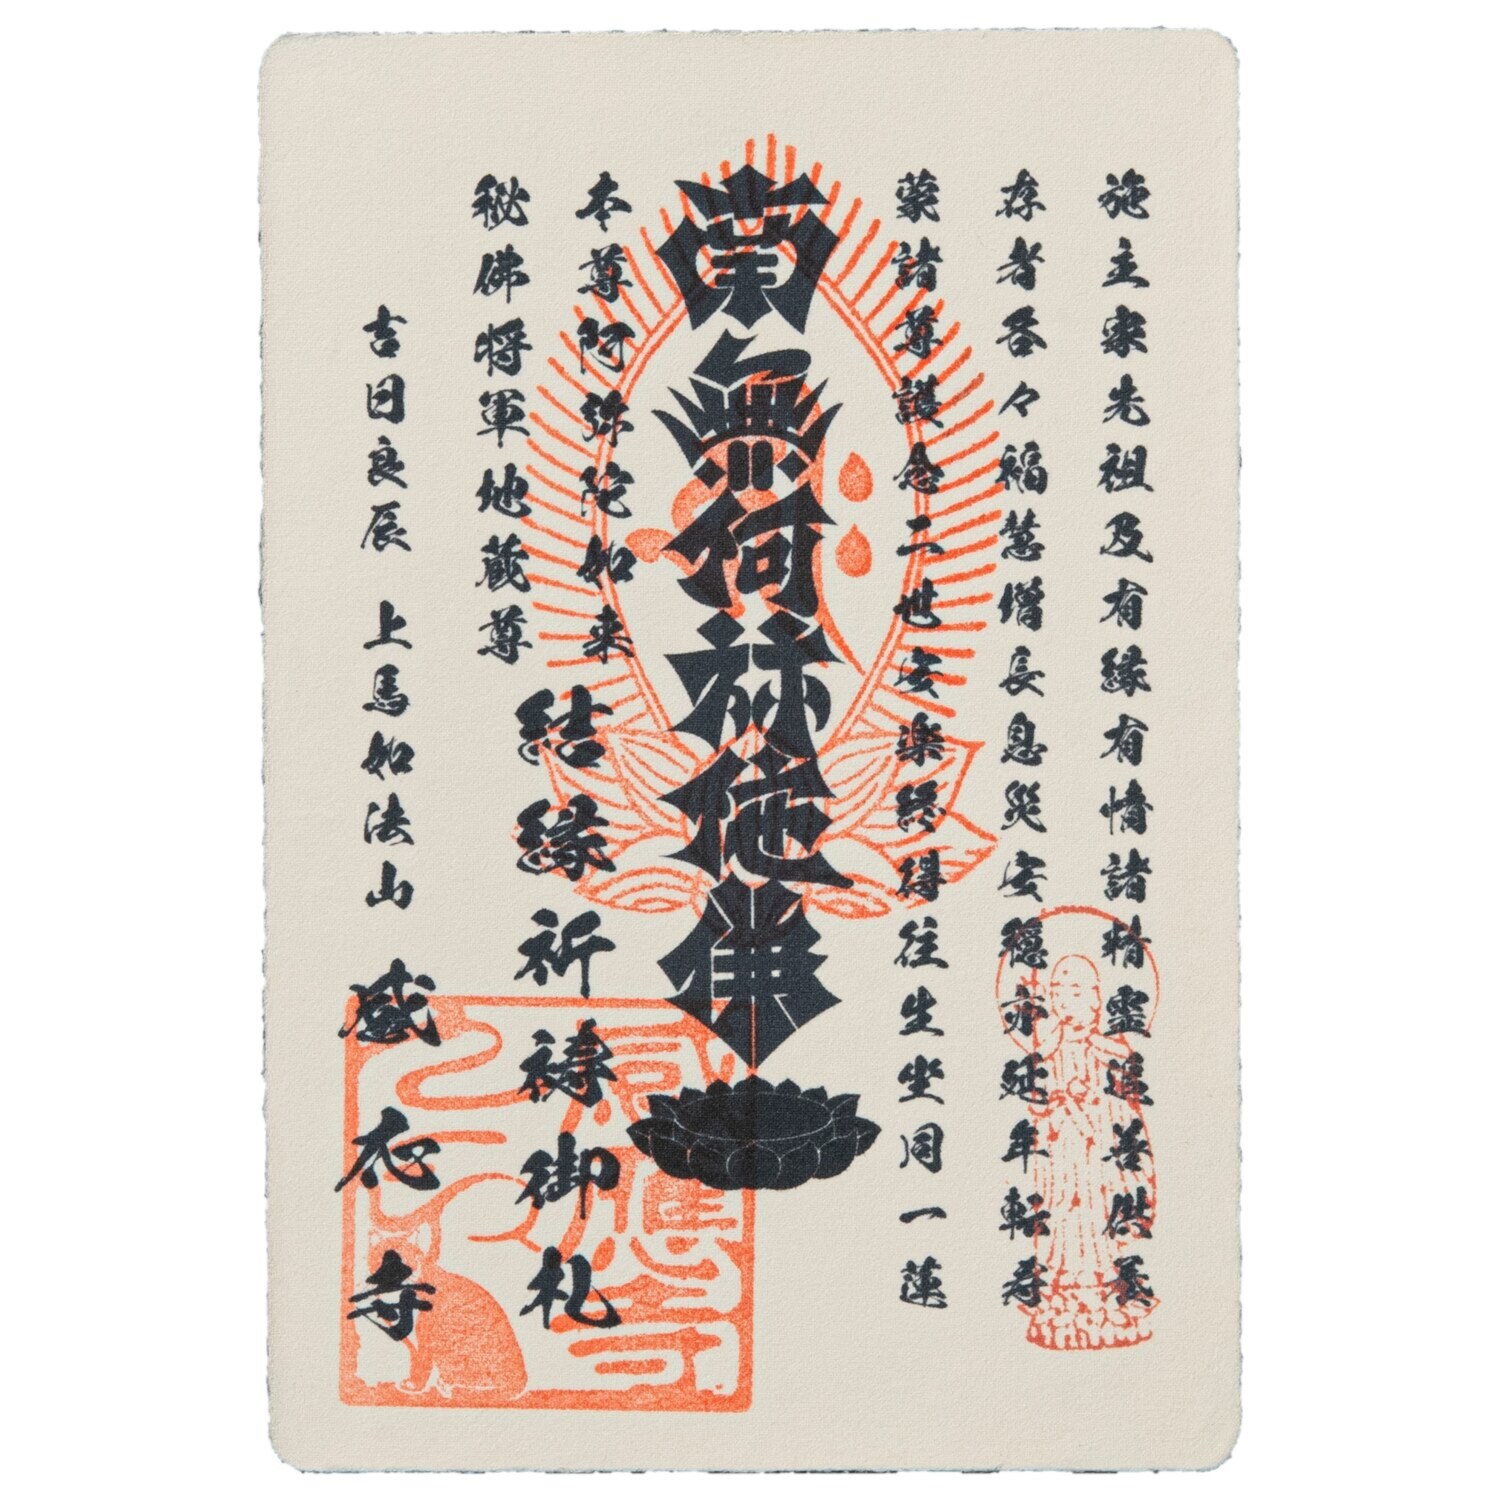 施主家先祖及有縁有情諸精霊追善供養
存者各々福慧増長息災安穏亦延年転寿
蒙諸尊護念二世安楽終得往生坐同一蓮
南無阿弥陀佛
本尊阿弥陀如来
秘佛将軍地蔵尊
結縁祈祷御札
吉日良辰 上馬如法山 感応寺
感應寺